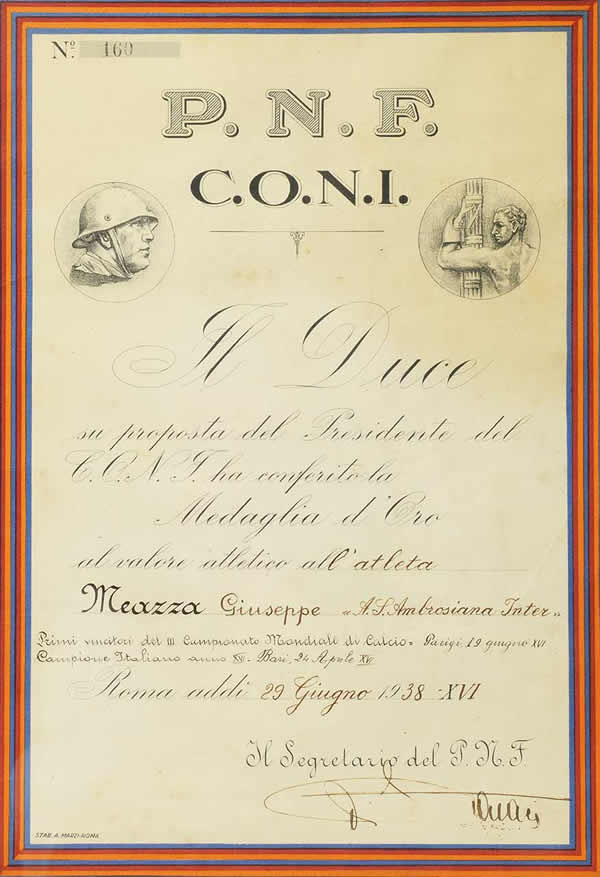 Nº. 160
P. N. F.
C.O.N.I.
Il Duce
su proposta del Presidente del
C.O.N.I. ha conferito la
Medaglia d'Oro
al valore atletico all'atleta
Meazza Giuseppe «A.S. Ambrosiana Inter»
Primi vincitori del III Campionato Mondiale di Calcio» Parigi, 19 giugno XVI
Campione Italiano anno XVI - Bari, 24 Aprile XVI
Roma addì 29 Giugno 1938-XVI
Il Segretario del P.N.F.
STAB. A. MARZI-ROMA